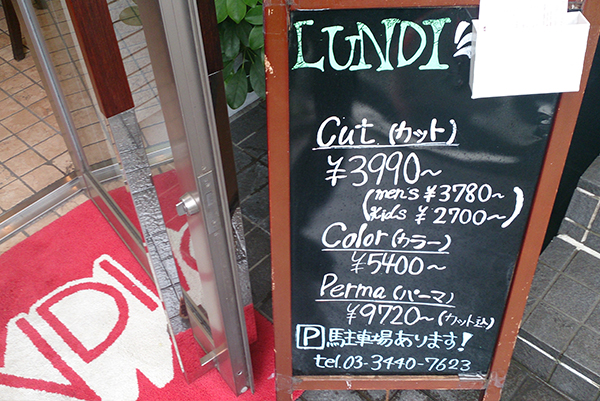 LUNDI
Cut (カット)
¥3990~
(men's ¥3780~
kids ¥2700~)
Color (カラー)
¥5400~
Perma (パーマ)
¥9720~(カット込)
P 駐車場あります!
tel.03-3440-7623
NDI